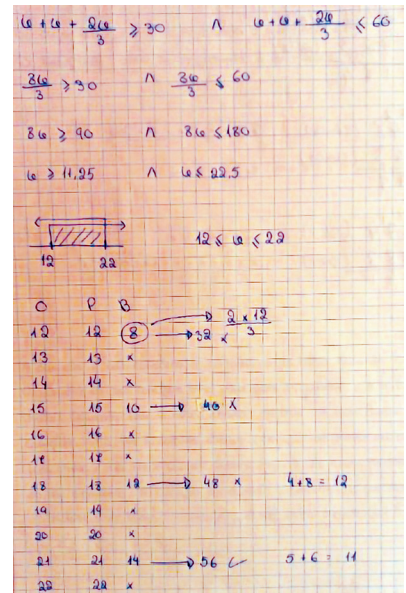 w + w + 2w/3 ≥ 30 ∧ w + w + 2w/3 ≤ 60
8w/3 ≥ 30 ∧ 8w/3 ≤ 60
8w ≥ 90 ∧ 8w ≤ 180
w ≥ 11,25 ∧ w ≤ 22,5
12 ≤ w ≤ 22
12 22
O P B
2 x 12/3
12 12 8 → 32 x
13 13 x
14 14 x
15 15 10 → 40 x
16 16 x
17 17 x
18 18 12 → 48 x 4+8 = 12
19 19 x
20 20 x
21 21 14 → 56 ✓ 5+6 = 11
22 22 x